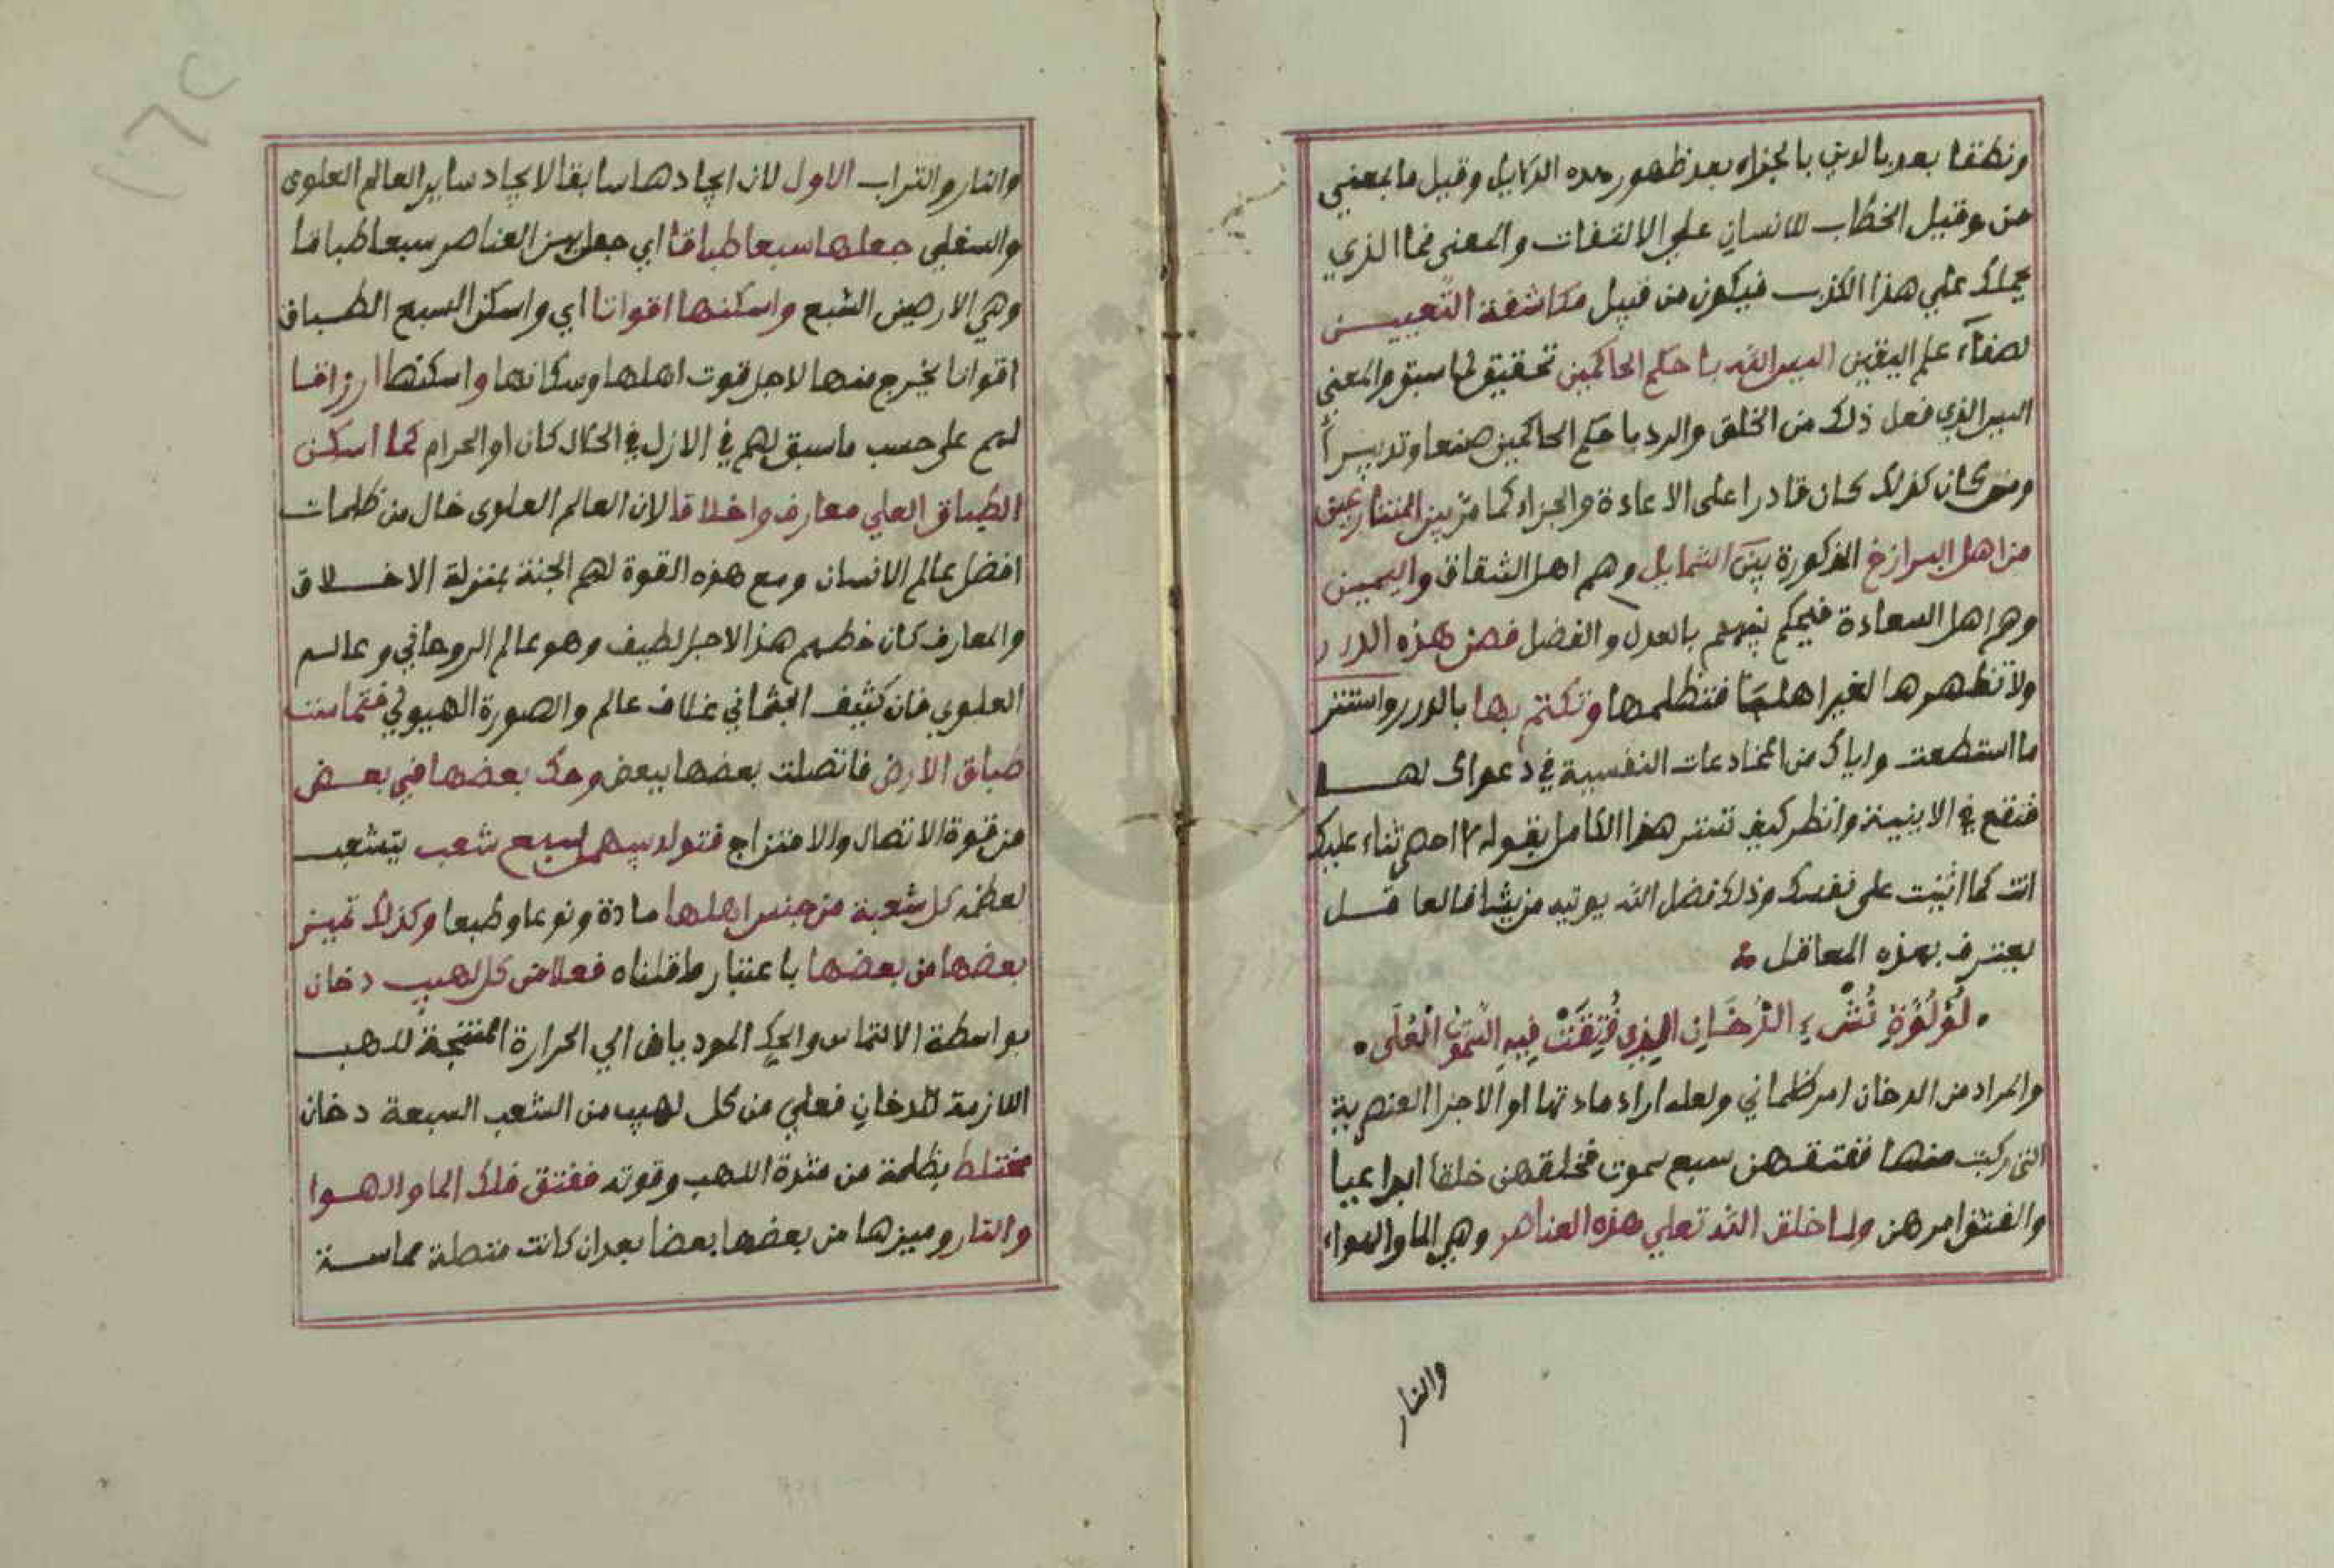 ونطقا بعد بالدين بالجزاء بعد ظهور هذه الدلايل وقيل ما بمعني
من وقيل الخطاب للانسان علي الالتفات والمعني فما الذي
يحملك علي هذا الكذب فيكون من قبيل مكاشفة التعيين
لصفاء علم اليقين اليس الله باحكم الحاكمين تحقيق لما سبق والمعني
اليس الذي فعل ذلك من الخلق والرد باحكم الحاكمين صنعا وتدبيرا
ومن كان كذلك كان قادرا على الاعادة والجزاء كما مر بين المتنازعين
من اهل البرازخ المذكورة بين الشمايل وهم اهل الشقاق واليمين
وهم اهل السعادة فيحكم بينهم بالعدل والفضل فصن هذه الدرر
ولا تظهرها لغير اهلها فتظلمها وتكتم بها بالدرر واستتر
ما استطعت واياك من المخادعات النفسية في دعواك لها
فتقع في الاينية وانظر كيف تستر هذا الكامل بقوله لا احصي ثناء عليك
انت كما اثنيت على نفسك وذلك فضل الله يوتيه من يشا فالعاقل
يعترف بهذه المعاقل
لُؤلُؤَةِ نُشْيءِ الدُّخَانِ الذِي فُتِقَتْ فِيهِ السَّموٰتُ الْعُلَى
والمراد من الدخان امر ظلماني ولعله اراد مادتها او الاجزا العنصرية
التي ركبت منها ففتقهن سبع سموت فخلقهن خلقا ابداعيا
والفتق امرهن ولما خلق الله تعلي هذه العناصر وهي الما والهواء
والنار
والنار والتراب الاول لان ايجادها سابقا لايجاد ساير العالم العلوي
والسفلي جعلها سبعا طباقا اي جعل من العناصر سبعا طباقا
وهي الارضين السبع واسكنها اقواتا اي واسكن السبع الطباق
اقواتا يخرج منها لاجل قوت اهلها وسكانها واسكنها ارزاقا
لهم على حسب ما سبق لهم في الازل في الحلال كان او الحرام كما اسكن
الطباق العلي معارف واخلاقا لان العالم العلوي خال من ظلمات
افضل عالم الانسان ومع هذه القوة لهم الجنة بمنزلة الاخلاق
والمعارف كان حظهم هذا الاجر لطيف وهو عالم الروحاني وعالم
العلوي فان كثيف الجثماني غلاف عالم والصورة الهيولي فتماست
طباق الارض فاتصلت بعضها ببعض وحك بعضها في بعض
من قوة الاتصال والامتزاج فتولد لهب سبع شعب يتشعب
لعظمه كل شعبة من جنس اهلها مادة ونوعا وطبعا وكذلك تميز
بعضها من بعضها باعتبار ما قلناه فعلا من كل لهب دخان
بواسطة الالتماس والحك المودبان الي الحرارة المنتجة للهب
اللازمة للدخان فعلي من كل لهيب من الشعب السبعة دخان
مختلط بظلمة من شدة اللهب وقوته ففتق فلك الما والهوا
والنار وميزها من بعضها بعضا بعد ان كانت متصلة مماسة